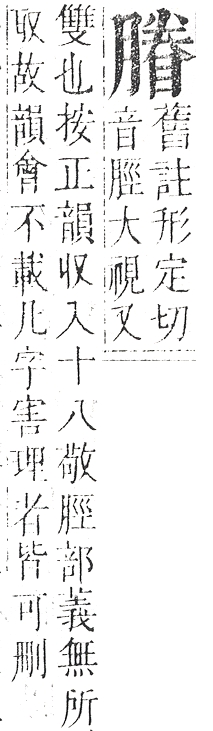 舊註形定切
音脛大視又
雙也按正韻収入十八敬脛部義無所
取故韻會不載凡字害理者皆可刪